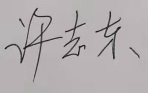 许志东